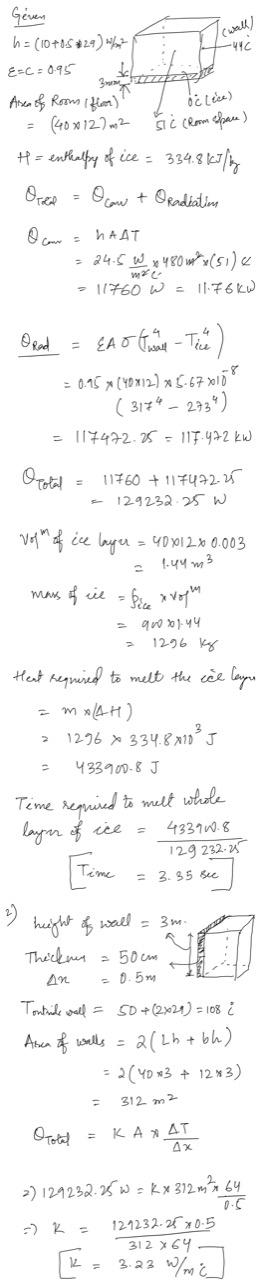 Given
h = (10+0.5*29) W/m²
ε=C = 0.95
3mm
(wall)
44°C
0°C (ice)
51°C (Room space)
Area of Room (floor)
= (40×12) m²
H = enthalpy of ice = 334.8 kJ/kg
Q Total = Q conv + Q Radiation
Q conv = hAΔT
= 24.5 W/m²°C × 480 m² × (51) °C
= 11760 W = 11.76 kW
Q Rad = εAσ (T⁴wall - T⁴ice)
= 0.95 × (40×12) × 5.67×10⁻⁸
(317⁴ - 273⁴)
= 117472.25 = 117.472 kW
Q Total = 11760 + 117472.25
= 129232.25 W
Volᵐ of ice layer = 40×12×0.003
= 1.44 m³
mass of ice = ρice × volᵐ
= 900×1.44
= 1296 kg
Heat required to melt the ice layer
= m×(ΔH)
= 1296 × 334.8×10³ J
= 433900.8 J
Time required to melt whole
layer of ice = 433900.8 / 129232.25
[Time = 3.35 sec]
2) height of wall = 3m.
Thickness = 50 cm
Δx = 0.5m
T outside wall = 50+(2×29) = 108 °C
Area of walls = 2(lh + bh)
= 2(40×3 + 12×3)
= 312 m²
Q Total = K A × ΔT/Δx
=) 129232.25 W = K × 312 m² × 64/0.5
=) K = 129232.25 × 0.5 / 312 × 64
[K = 3.23 W/m°C]